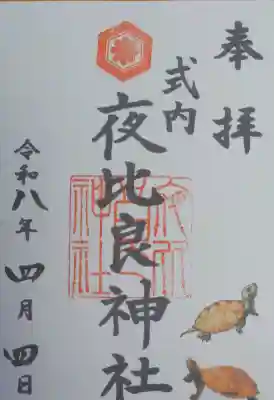 奉拝
式内
夜比良神社
令和八年四月四日